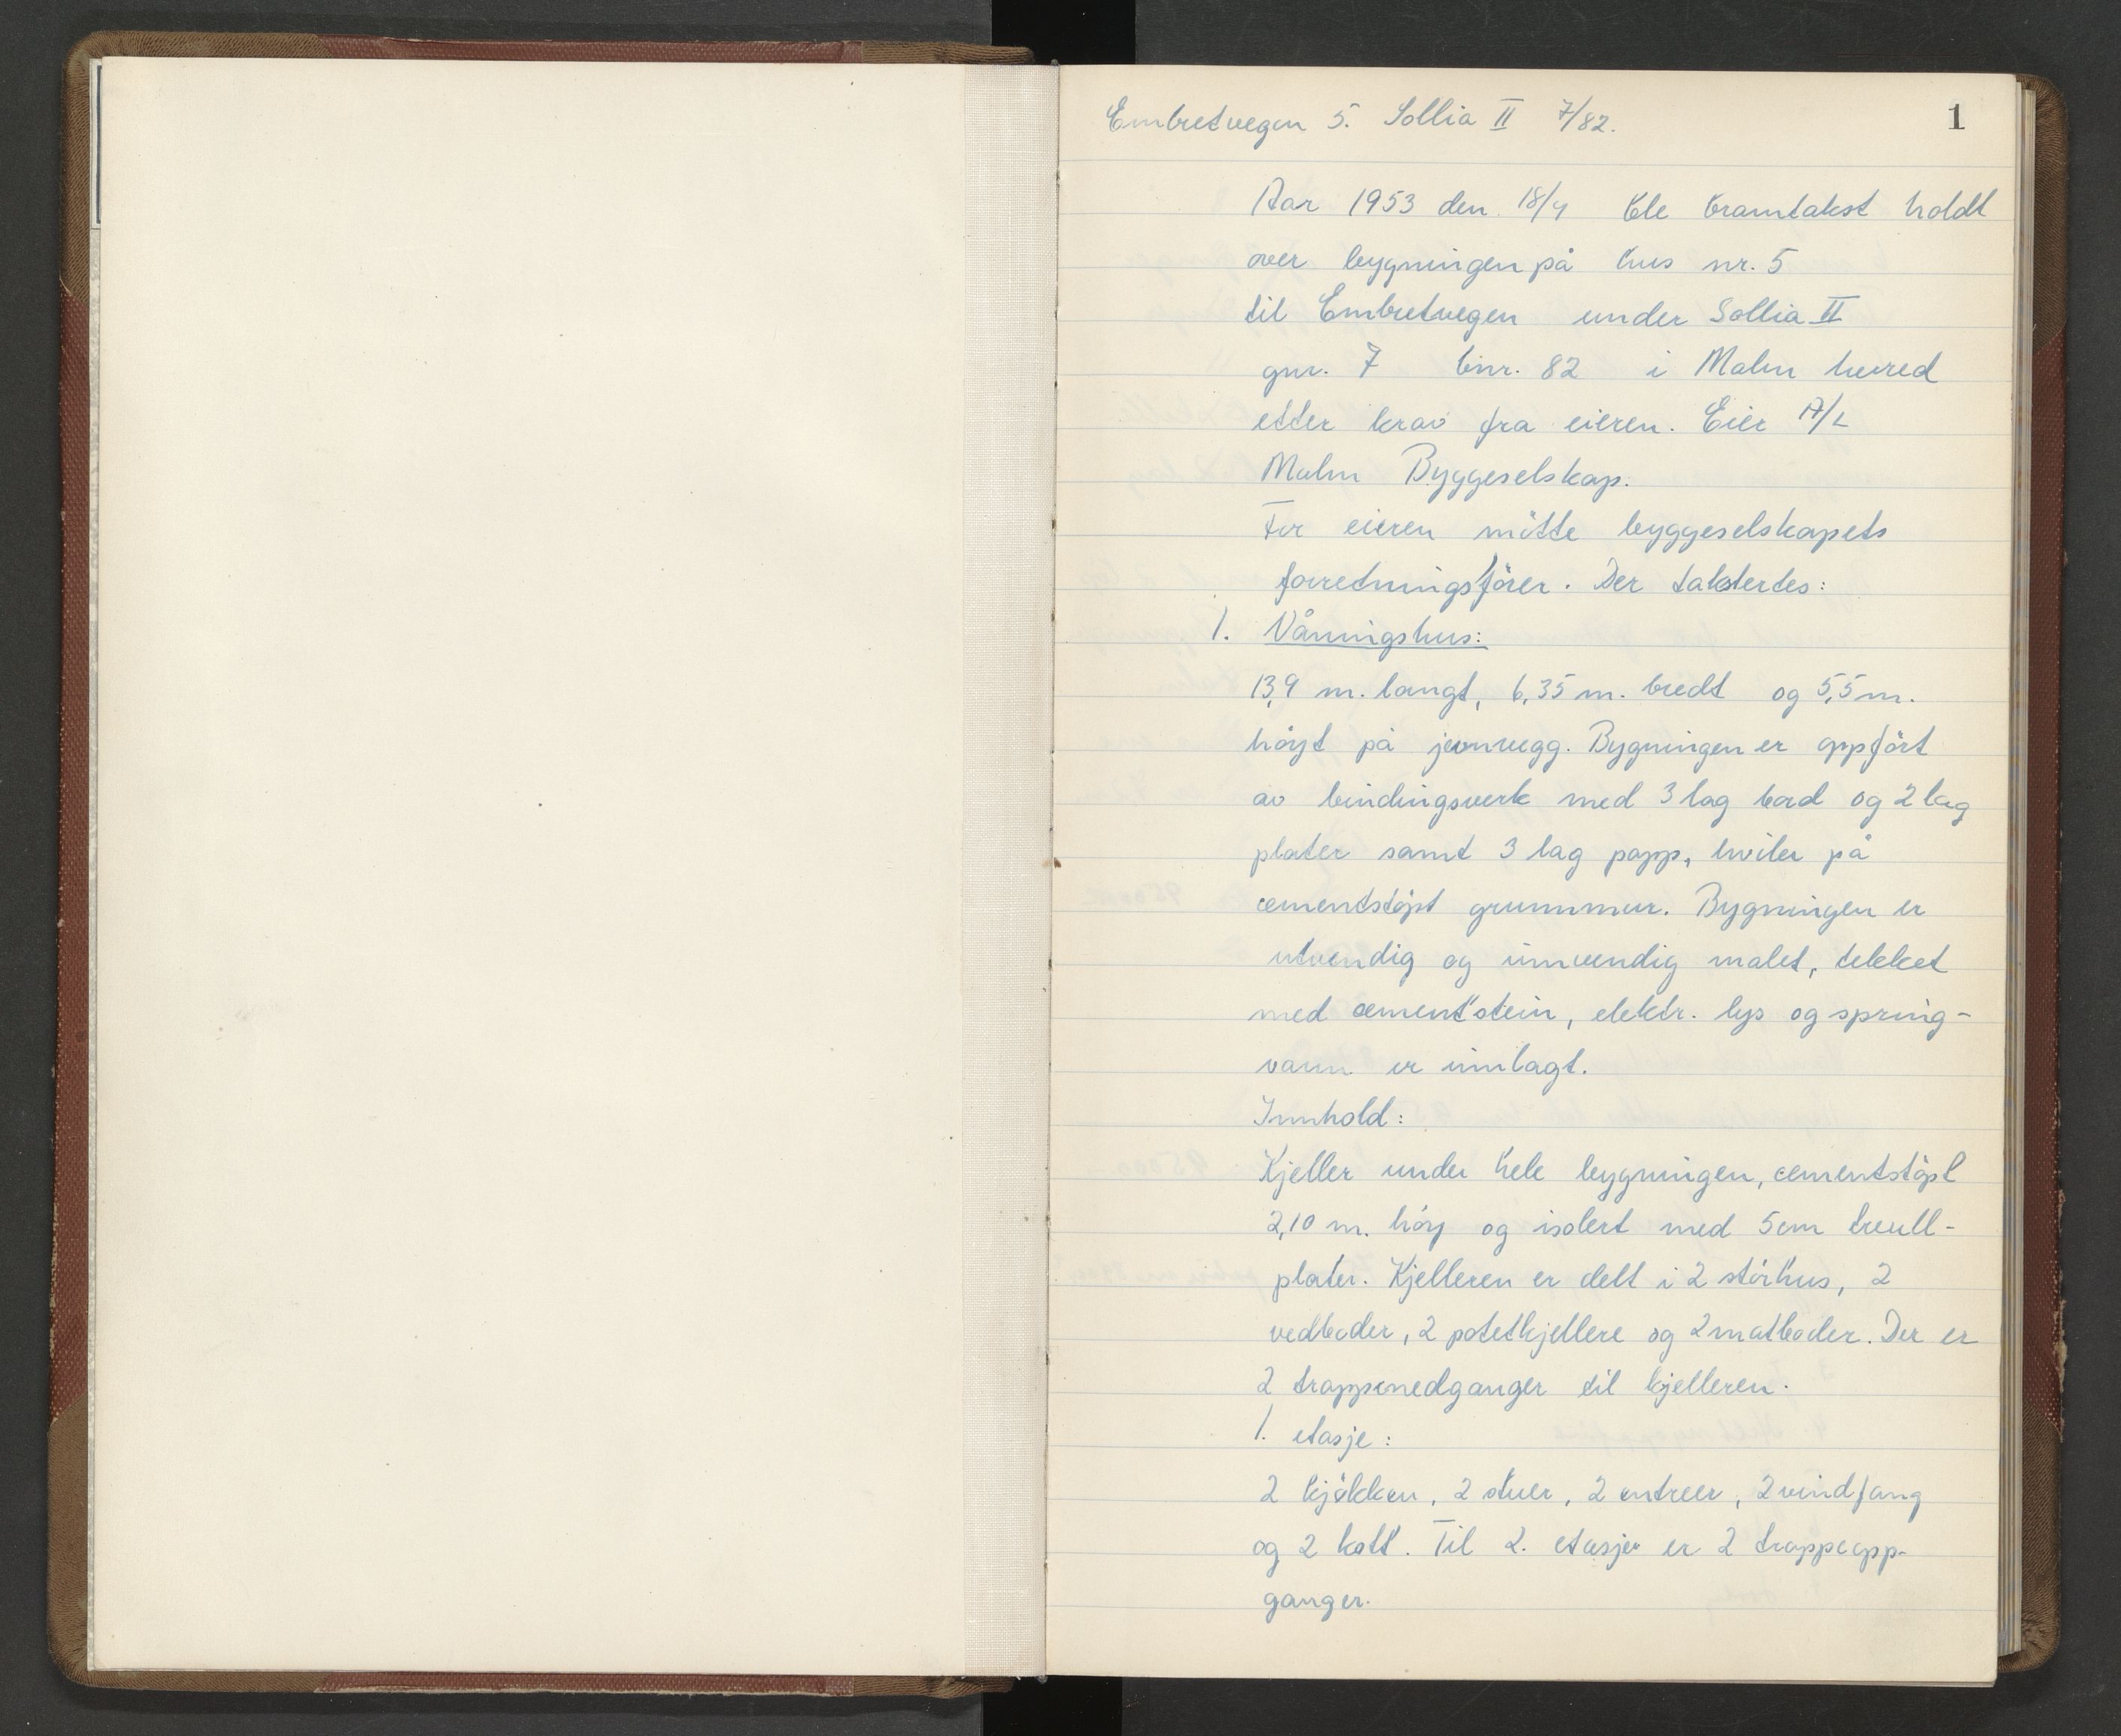 Embretvegen 5. Sollia II 7/82.
1
Aar 1953 den 18/4 ble branntakst holdt
over bygningen på hus nr. 5
til Embretvegen under Sollia II
gnr. 7 bnr. 82 i Malm herred
etter krav fra eieren. Eier A/L
Malm Byggeselskap.
For eieren mötte byggeselskapets
forretningsförer. Der takstertes:
1. Våningshus:
13,9 m. langt, 6,35 m. bredt og 5,5 m.
höyt på jevnvegg. Bygningen er oppfört
av bindingsverk med 3 lag bord og 2 lag
plater samt 3 lag papp, hviler på
cementstöpt grunnmur. Bygningen er
utvendig og innvendig malet, tekket
med cementstein, elektr. lys og spring-
vann er innlagt.
Innhold:
Kjeller under hele bygningen, cementstöpt
2,10 m. höy og isolert med 5cm treull-
plater. Kjelleren er delt i 2 störhus, 2
vedboder, 2 potetkjellere og 2 matboder. Der er
2 trappenedganger til kjelleren.
1. etasje:
2 kjökken, 2 stuer, 2 entreer, 2 vindfang
og 2 kott. Til 2. etasje er 2 trappeopp-
ganger.